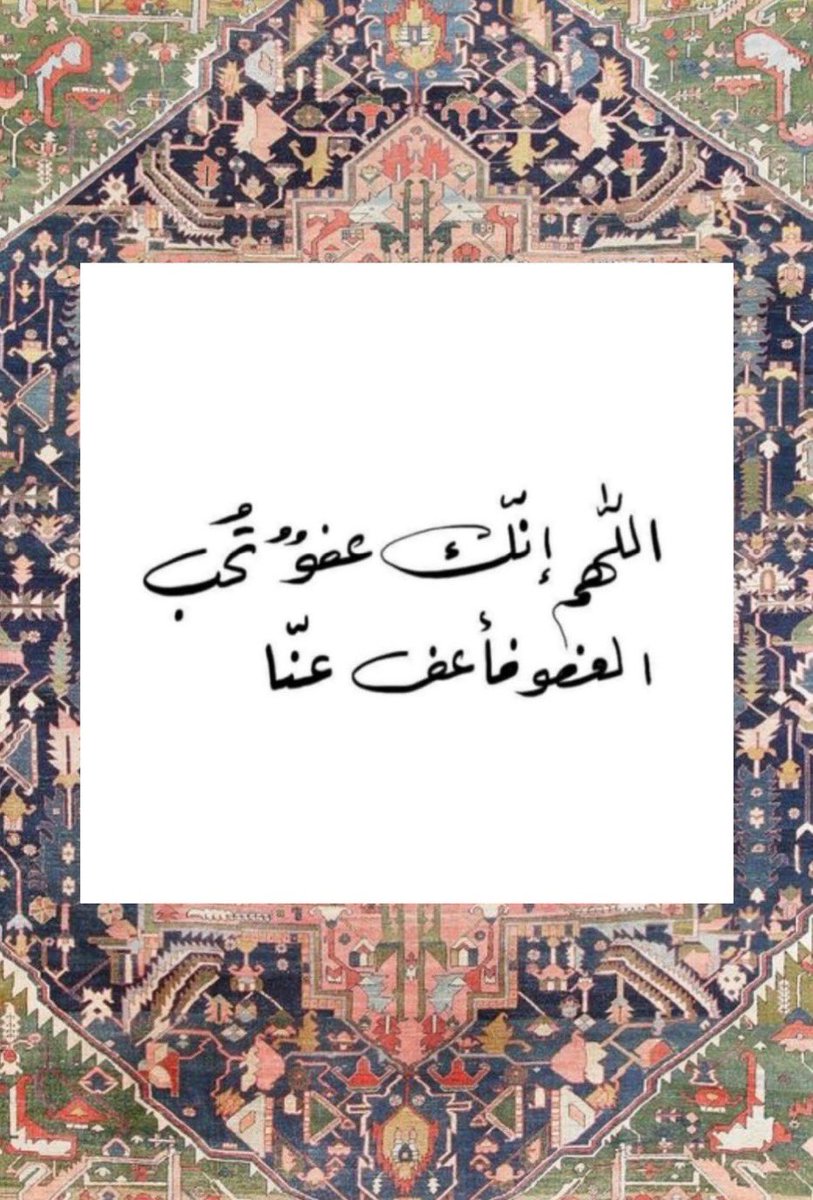 اللّهم إنّك عفوٌ تُحب
العفو فأعف عنّا